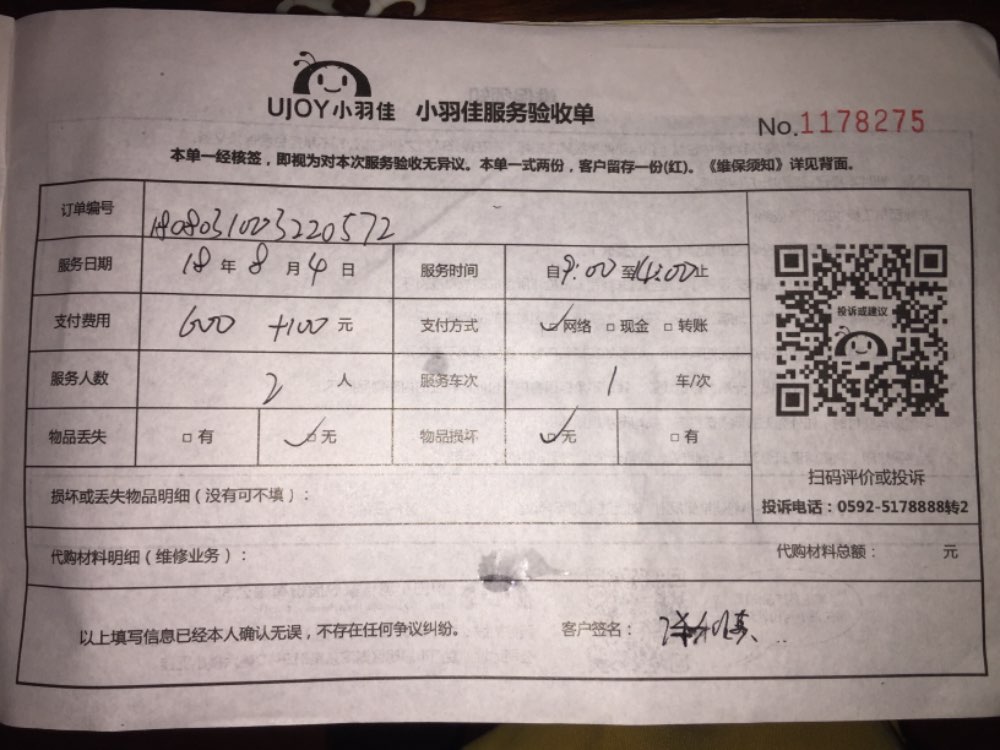 UJOY小羽佳 小羽佳服务验收单
No.1178275
本单一经核签，即视为对本次服务验收无异议。本单一式两份，客户留存一份(红)。《维保须知》详见背面。
订单编号 1808031003220572
服务日期 18 年 8 月 4 日 服务时间 自9:00至14:00止
支付费用 600 +100 元 支付方式 ☑网络 □现金 □转账
投诉或建议
服务人数 2 人 服务车次 1 车/次
物品丢失 □有 ☑无 物品损坏 ☑无 □有
扫码评价或投诉
损坏或丢失物品明细（没有可不填）：
投诉电话：0592-5178888转2
代购材料明细（维修业务）： 代购材料总额： 元
以上填写信息已经本人确认无误，不存在任何争议纠纷。 客户签名：